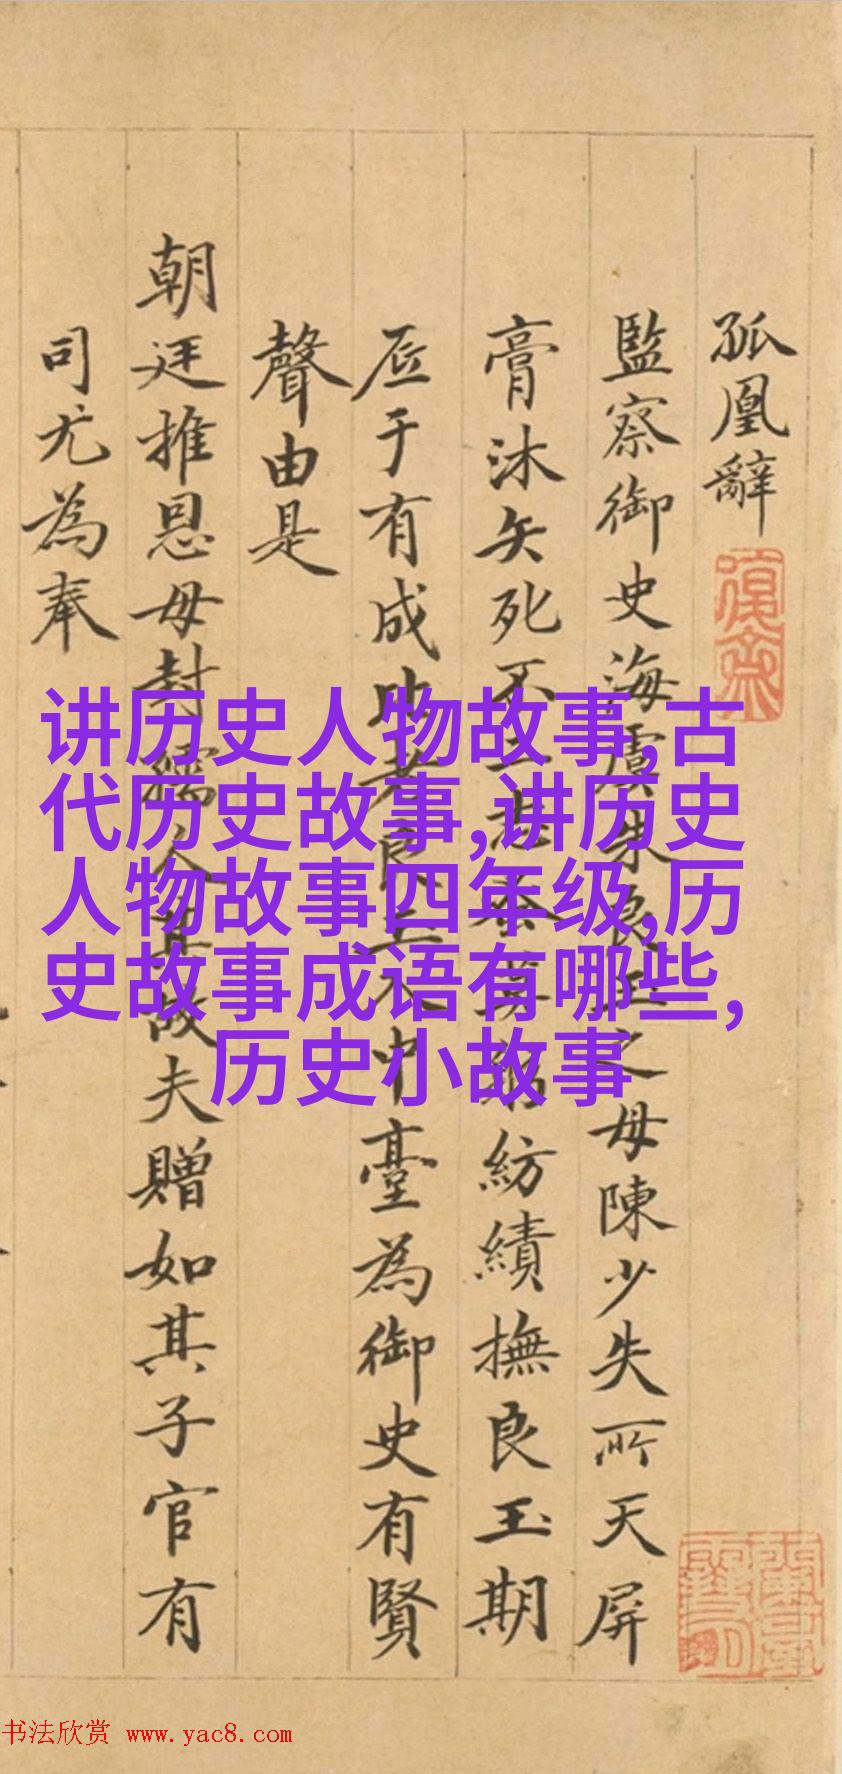 孤凰辭
監察御史海虞朱良玉之母陳少失所天屏
膏沐矢死不二志蚕莫紡績撫良玉期
底于有成此者良玉入中臺為御史有賢
聲由是
朝廷推恩母封孺人其故夫贈如其子官有
司尤為奉
讲历史人物故事,古
代历史故事,讲历史
人物故事四年级,历
史故事成语有哪些,
历史小故事
书法欣赏 www.yac8.com